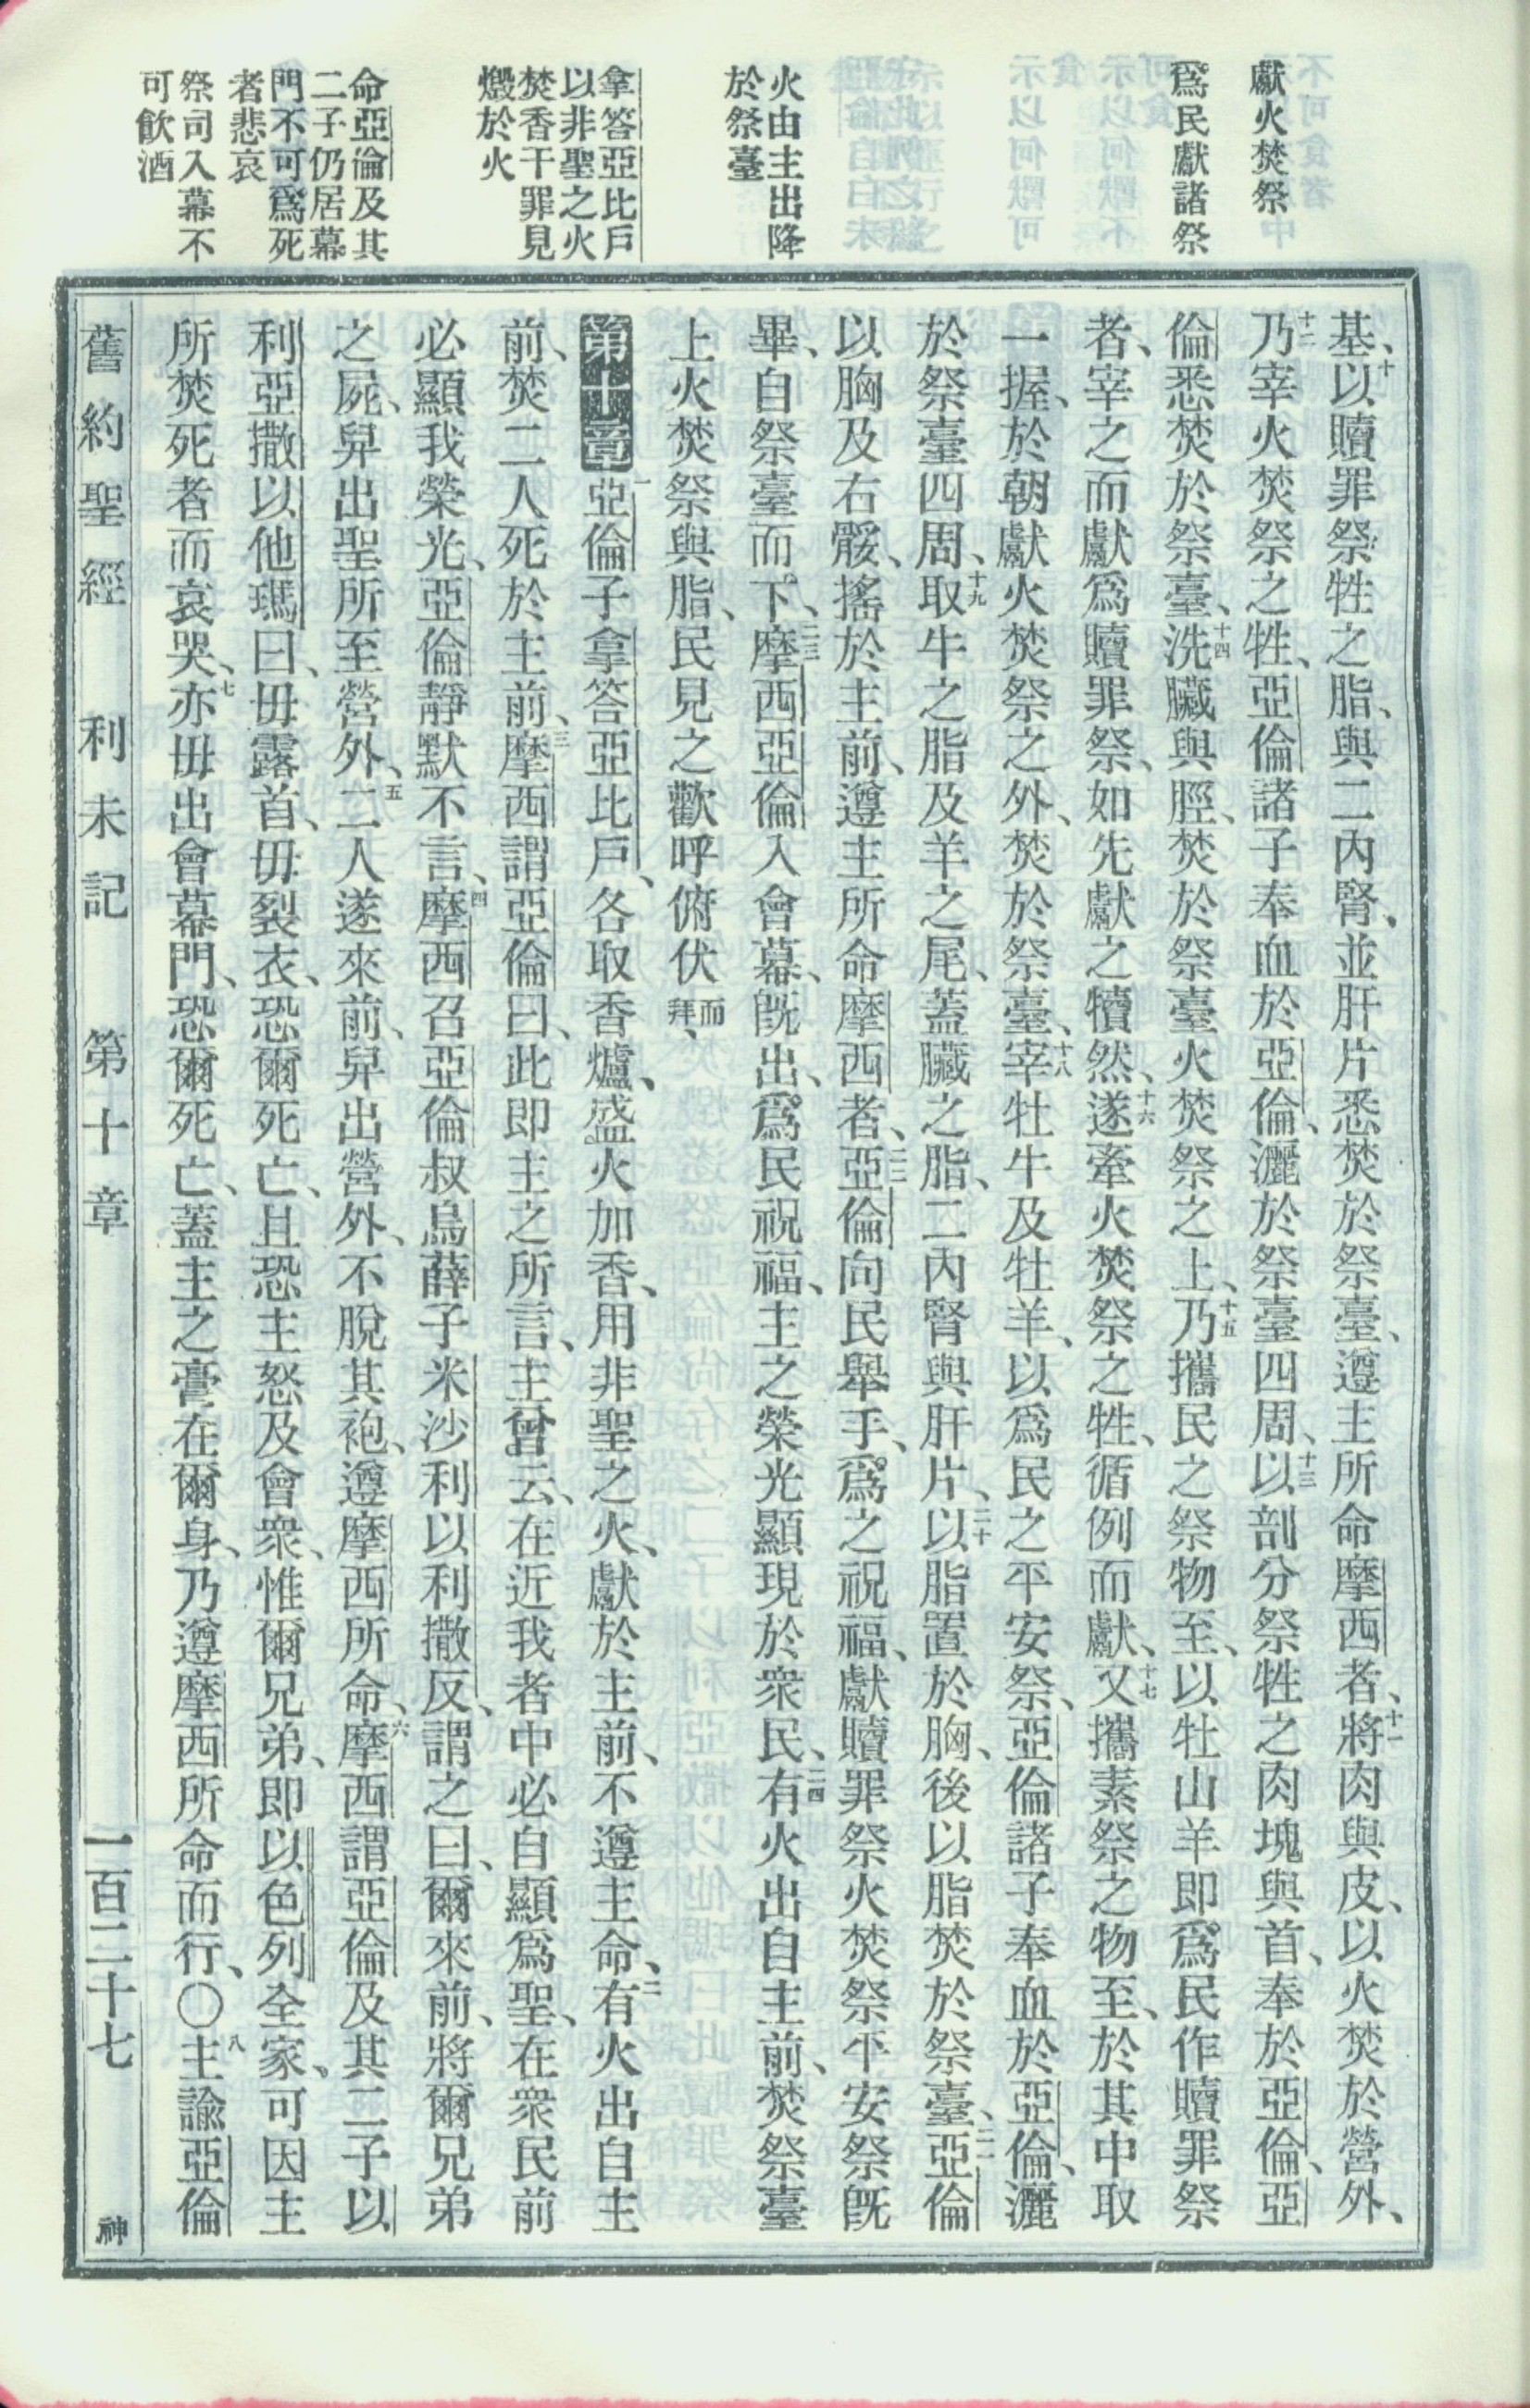 獻火焚祭
爲民獻諸祭
火由主出降
於祭臺
拿答亞比戶
以非聖之火
焚香干罪見
燬於火
命亞倫及其
二子仍居幕
門不可爲死
者悲哀
祭司入幕不
可飮酒
基、十以贖罪祭牲之脂、與二內腎、並肝片悉焚於祭臺、遵主所命摩西者、十一將肉與皮、以火焚於營外、
十二乃宰火焚祭之牲、亞倫諸子奉血於亞倫、灑於祭臺四周、十三以剖分祭牲之肉塊與首、奉於亞倫、亞
倫悉焚於祭臺、十四洗臟與脛、焚於祭臺火焚祭之上、十五乃攜民之祭物至、以牡山羊卽爲民作贖罪祭
者、宰之而獻爲贖罪祭、如先獻之犢然、十六遂牽火焚祭之牲、循例而獻、十七又攜素祭之物至、於其中取
一握、於朝獻火焚祭之外、焚於祭臺、十八宰牡牛及牡羊、以爲民之平安祭、亞倫諸子奉血於亞倫、灑
於祭臺四周、十九取牛之脂及羊之尾、蓋臟之脂、二內腎與肝片、二十以脂置於胸、後以脂焚於祭臺、二一亞倫
以胸及右骽、搖於主前、遵主所命摩西者、二二亞倫向民舉手、爲之祝福、獻贖罪祭火焚祭平安祭旣
畢、自祭臺而下、二三摩西亞倫入會幕、旣出、爲民祝福、主之榮光顯現於衆民、二四有火出自主前、焚祭臺
上火焚祭與脂、民見之歡呼俯伏而拜、
第十章一亞倫子拿答亞比戶、各取香爐、盛火加香、用非聖之火、獻於主前、不遵主命、二有火出自主
前、焚二人死於主前、三摩西謂亞倫曰、此卽主之所言、主曾云、在近我者中必自顯爲聖、在衆民前
必顯我榮光、亞倫靜默不言、四摩西召亞倫叔烏薛子米沙利以利撒反、謂之曰、爾來前、將爾兄弟
之屍、舁出聖所至營外、五二人遂來前、舁出營外、不脫其袍、遵摩西所命、六摩西謂亞倫及其二子以
利亞撒以他瑪曰、毋露首、毋裂衣、恐爾死亡、且恐主怒及會衆、惟爾兄弟、卽以色列全家、可因主
所焚死者而哀哭、七亦毋出會幕門、恐爾死亡、蓋主之膏在爾身、乃遵摩西所命而行、〇八主諭亞倫
舊約聖經 利未記 第十章 一百二十七 神